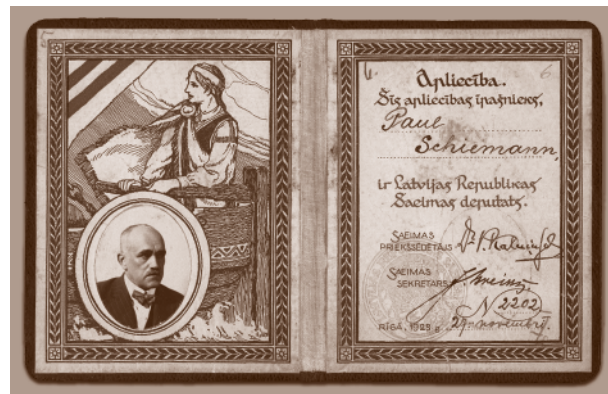 Apliecība.
Šīs apliecības īpašnieks,
Paul
Schiemann,
ir Latvijas Republikas
Saeimas deputats.
SAEIMAS
PRIEKŠSĒDĒTĀJS Dr. P. Kalniņš
SAEIMAS
SEKRETARS
N 2202
RĪGĀ, 1928 g. 29. novembrī.